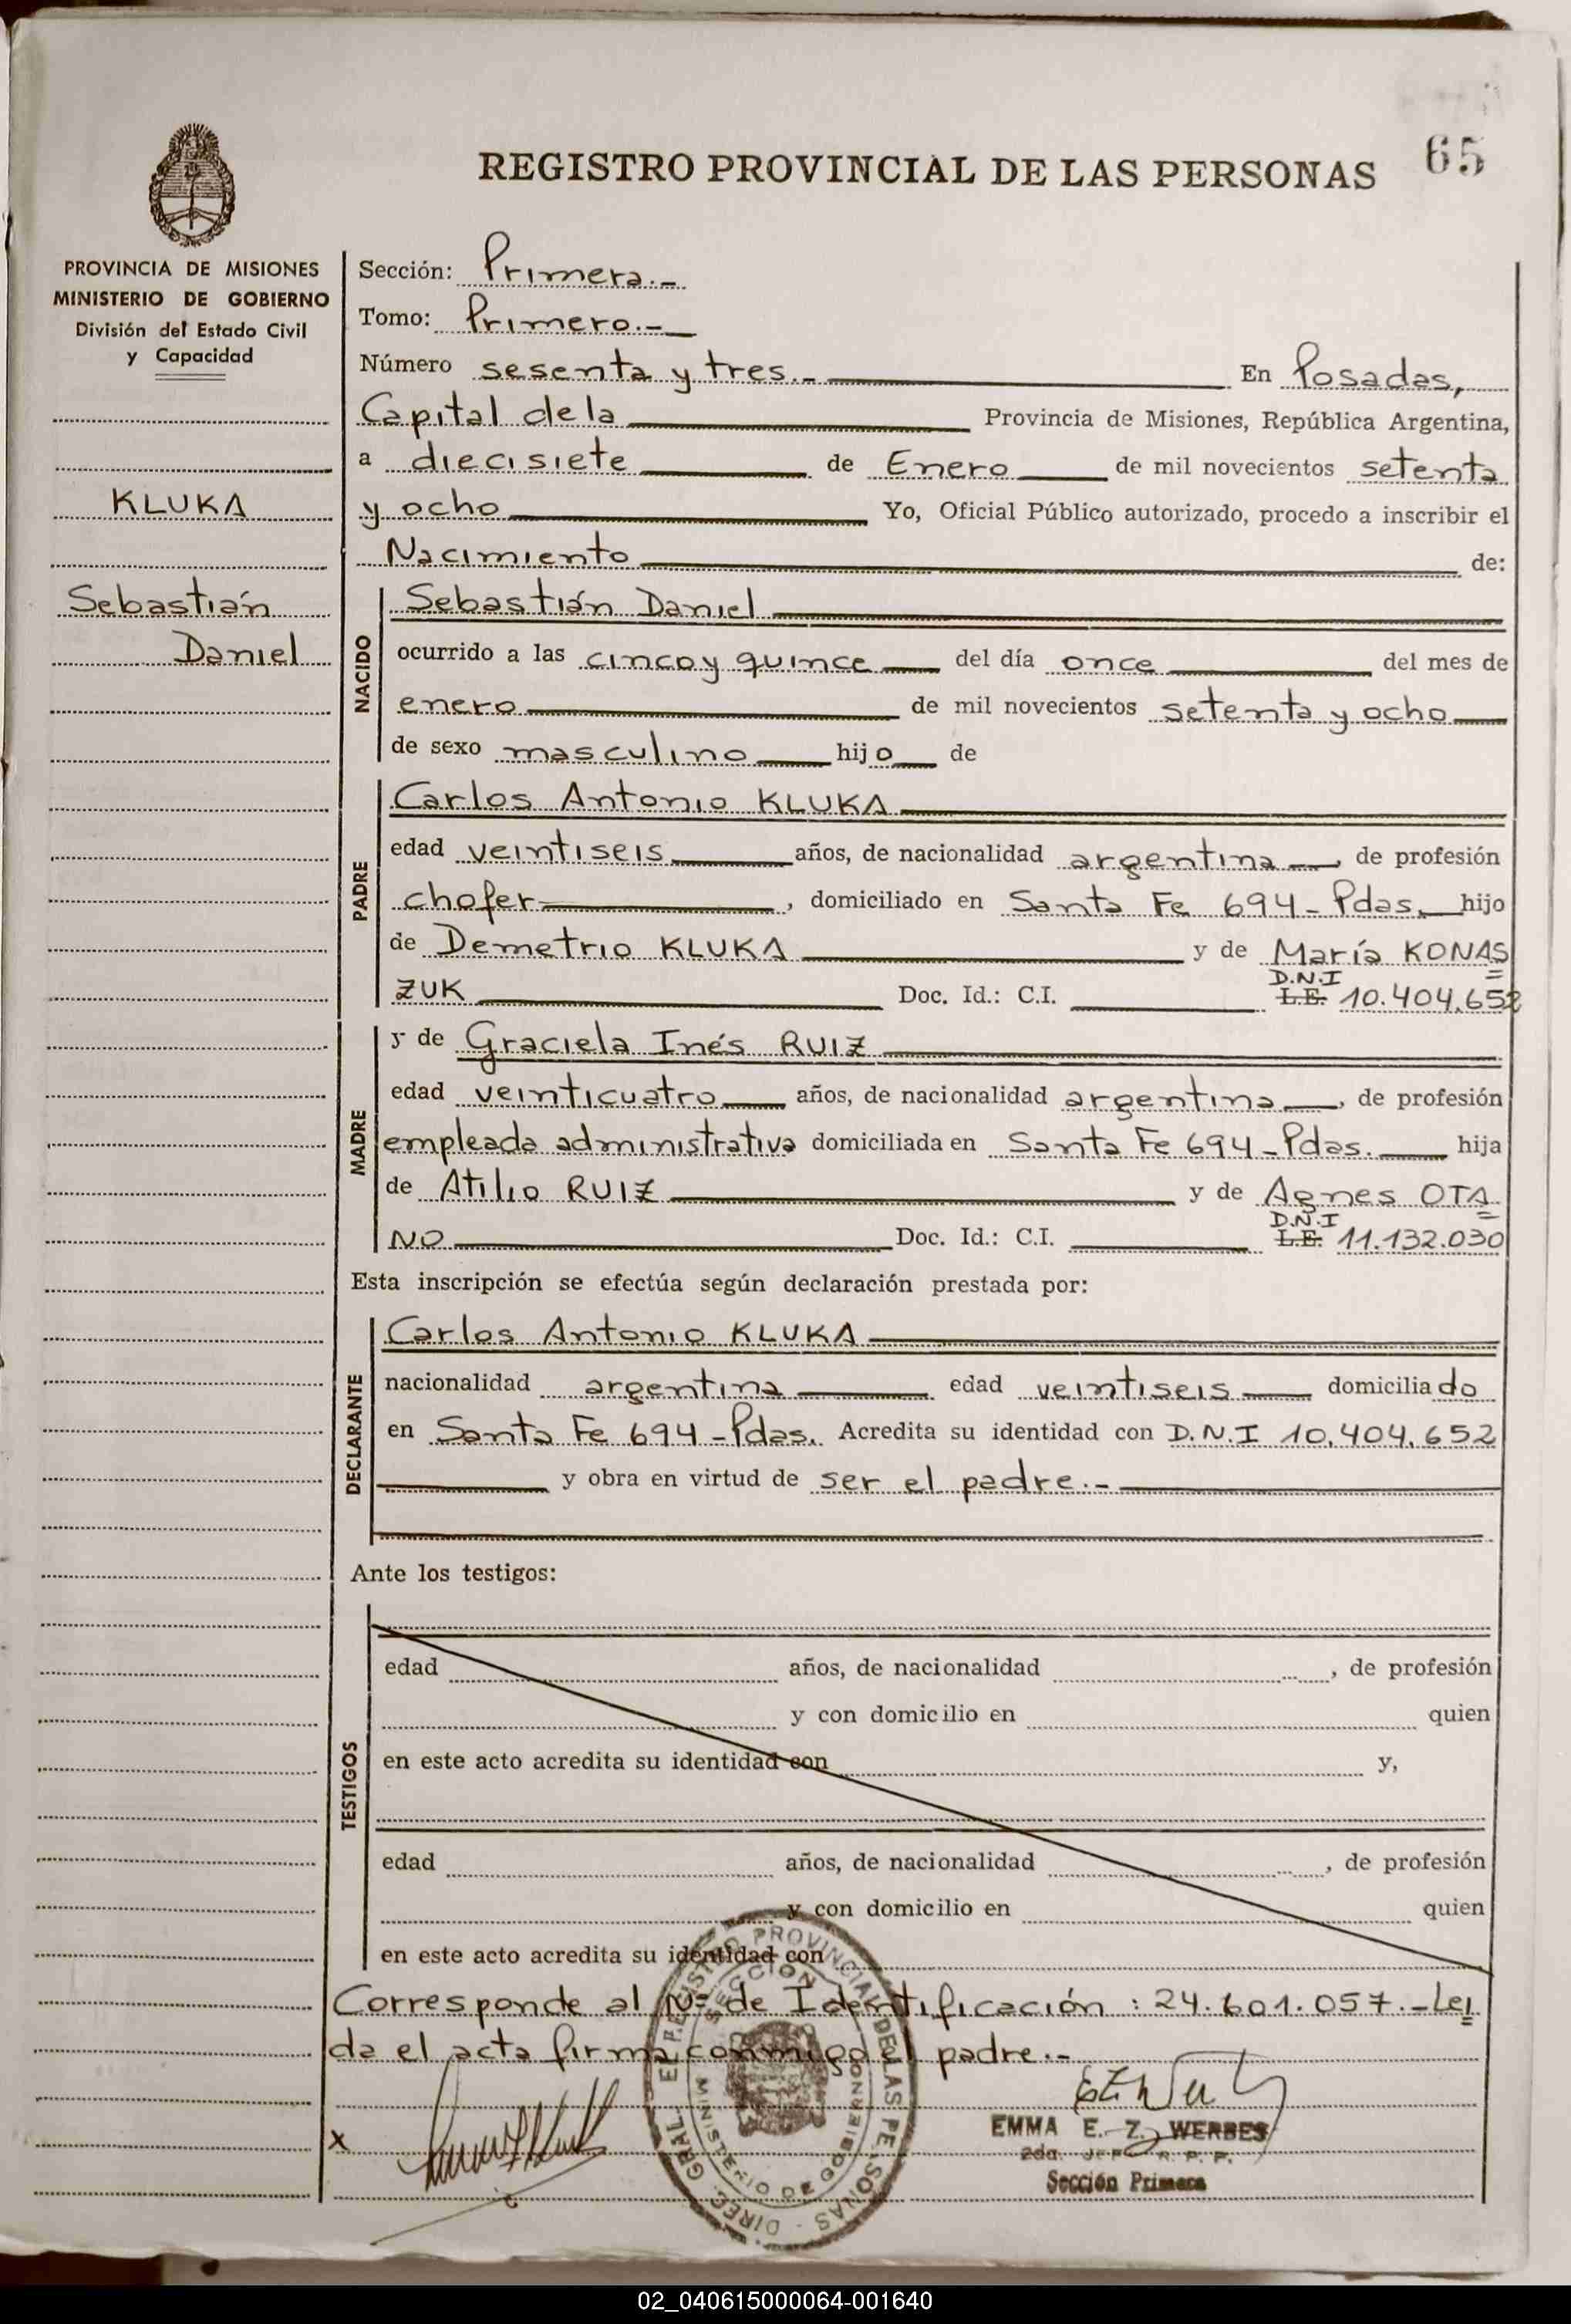 65
REGISTRO PROVINCIAL DE LAS PERSONAS
PROVINCIA DE MISIONES
MINISTERIO DE GOBIERNO
División del Estado Civil
y Capacidad
KLUKA
Sebastián
Daniel
Sección: Primera.-
Tomo: Primero.-
Número sesenta y tres.- En Posadas,
Capital de la Provincia de Misiones, República Argentina,
a diecisiete de Enero de mil novecientos setenta
y ocho Yo, Oficial Público autorizado, procedo a inscribir el
Nacimiento de:
NACIDO
Sebastián Daniel
ocurrido a las cinco y quince del día once del mes de
enero de mil novecientos setenta y ocho
de sexo masculino hijo de
PADRE
Carlos Antonio KLUKA
edad veintiseis años, de nacionalidad argentina, de profesión
chofer, domiciliado en Santa Fe 694- Pdas. hijo
de Demetrio KLUKA y de María KONAS
ZUK Doc. Id.: C.I. L.E. D.N.I 10.404.652
MADRE
y de Graciela Inés RUIZ
edad veinticuatro años, de nacionalidad argentina, de profesión
empleada administrativa domiciliada en Santa Fe 694-Pdas. hija
de Atilio RUIZ y de Agnes OTA
NO Doc. Id.: C.I. L.E. D.N.I 11.132.030
Esta inscripción se efectúa según declaración prestada por:
DECLARANTE
Carlos Antonio KLUKA
nacionalidad argentina edad veintiseis domiciliado
en Santa Fe 694-Pdas. Acredita su identidad con D.N.I 10.404.652
y obra en virtud de ser el padre.-
Ante los testigos:
TESTIGOS
edad años, de nacionalidad , de profesión
y con domicilio en quien
en este acto acredita su identidad con y,
edad años, de nacionalidad , de profesión
y con domicilio en quien
en este acto acredita su identidad con
Corresponde al Nº de Identificación: 24.601.057.-Lei
da el acta firma conmigo el padre.-
X
DIREC. GRAL. EL REGISTRO PROVINCIAL DE LAS PERSONAS
SECCION
MINISTERIO DE GOBIERNO
EMMA E. Z. WERBES
2da. JEFE R. P. P.
Sección Primera
02_040615000064-001640